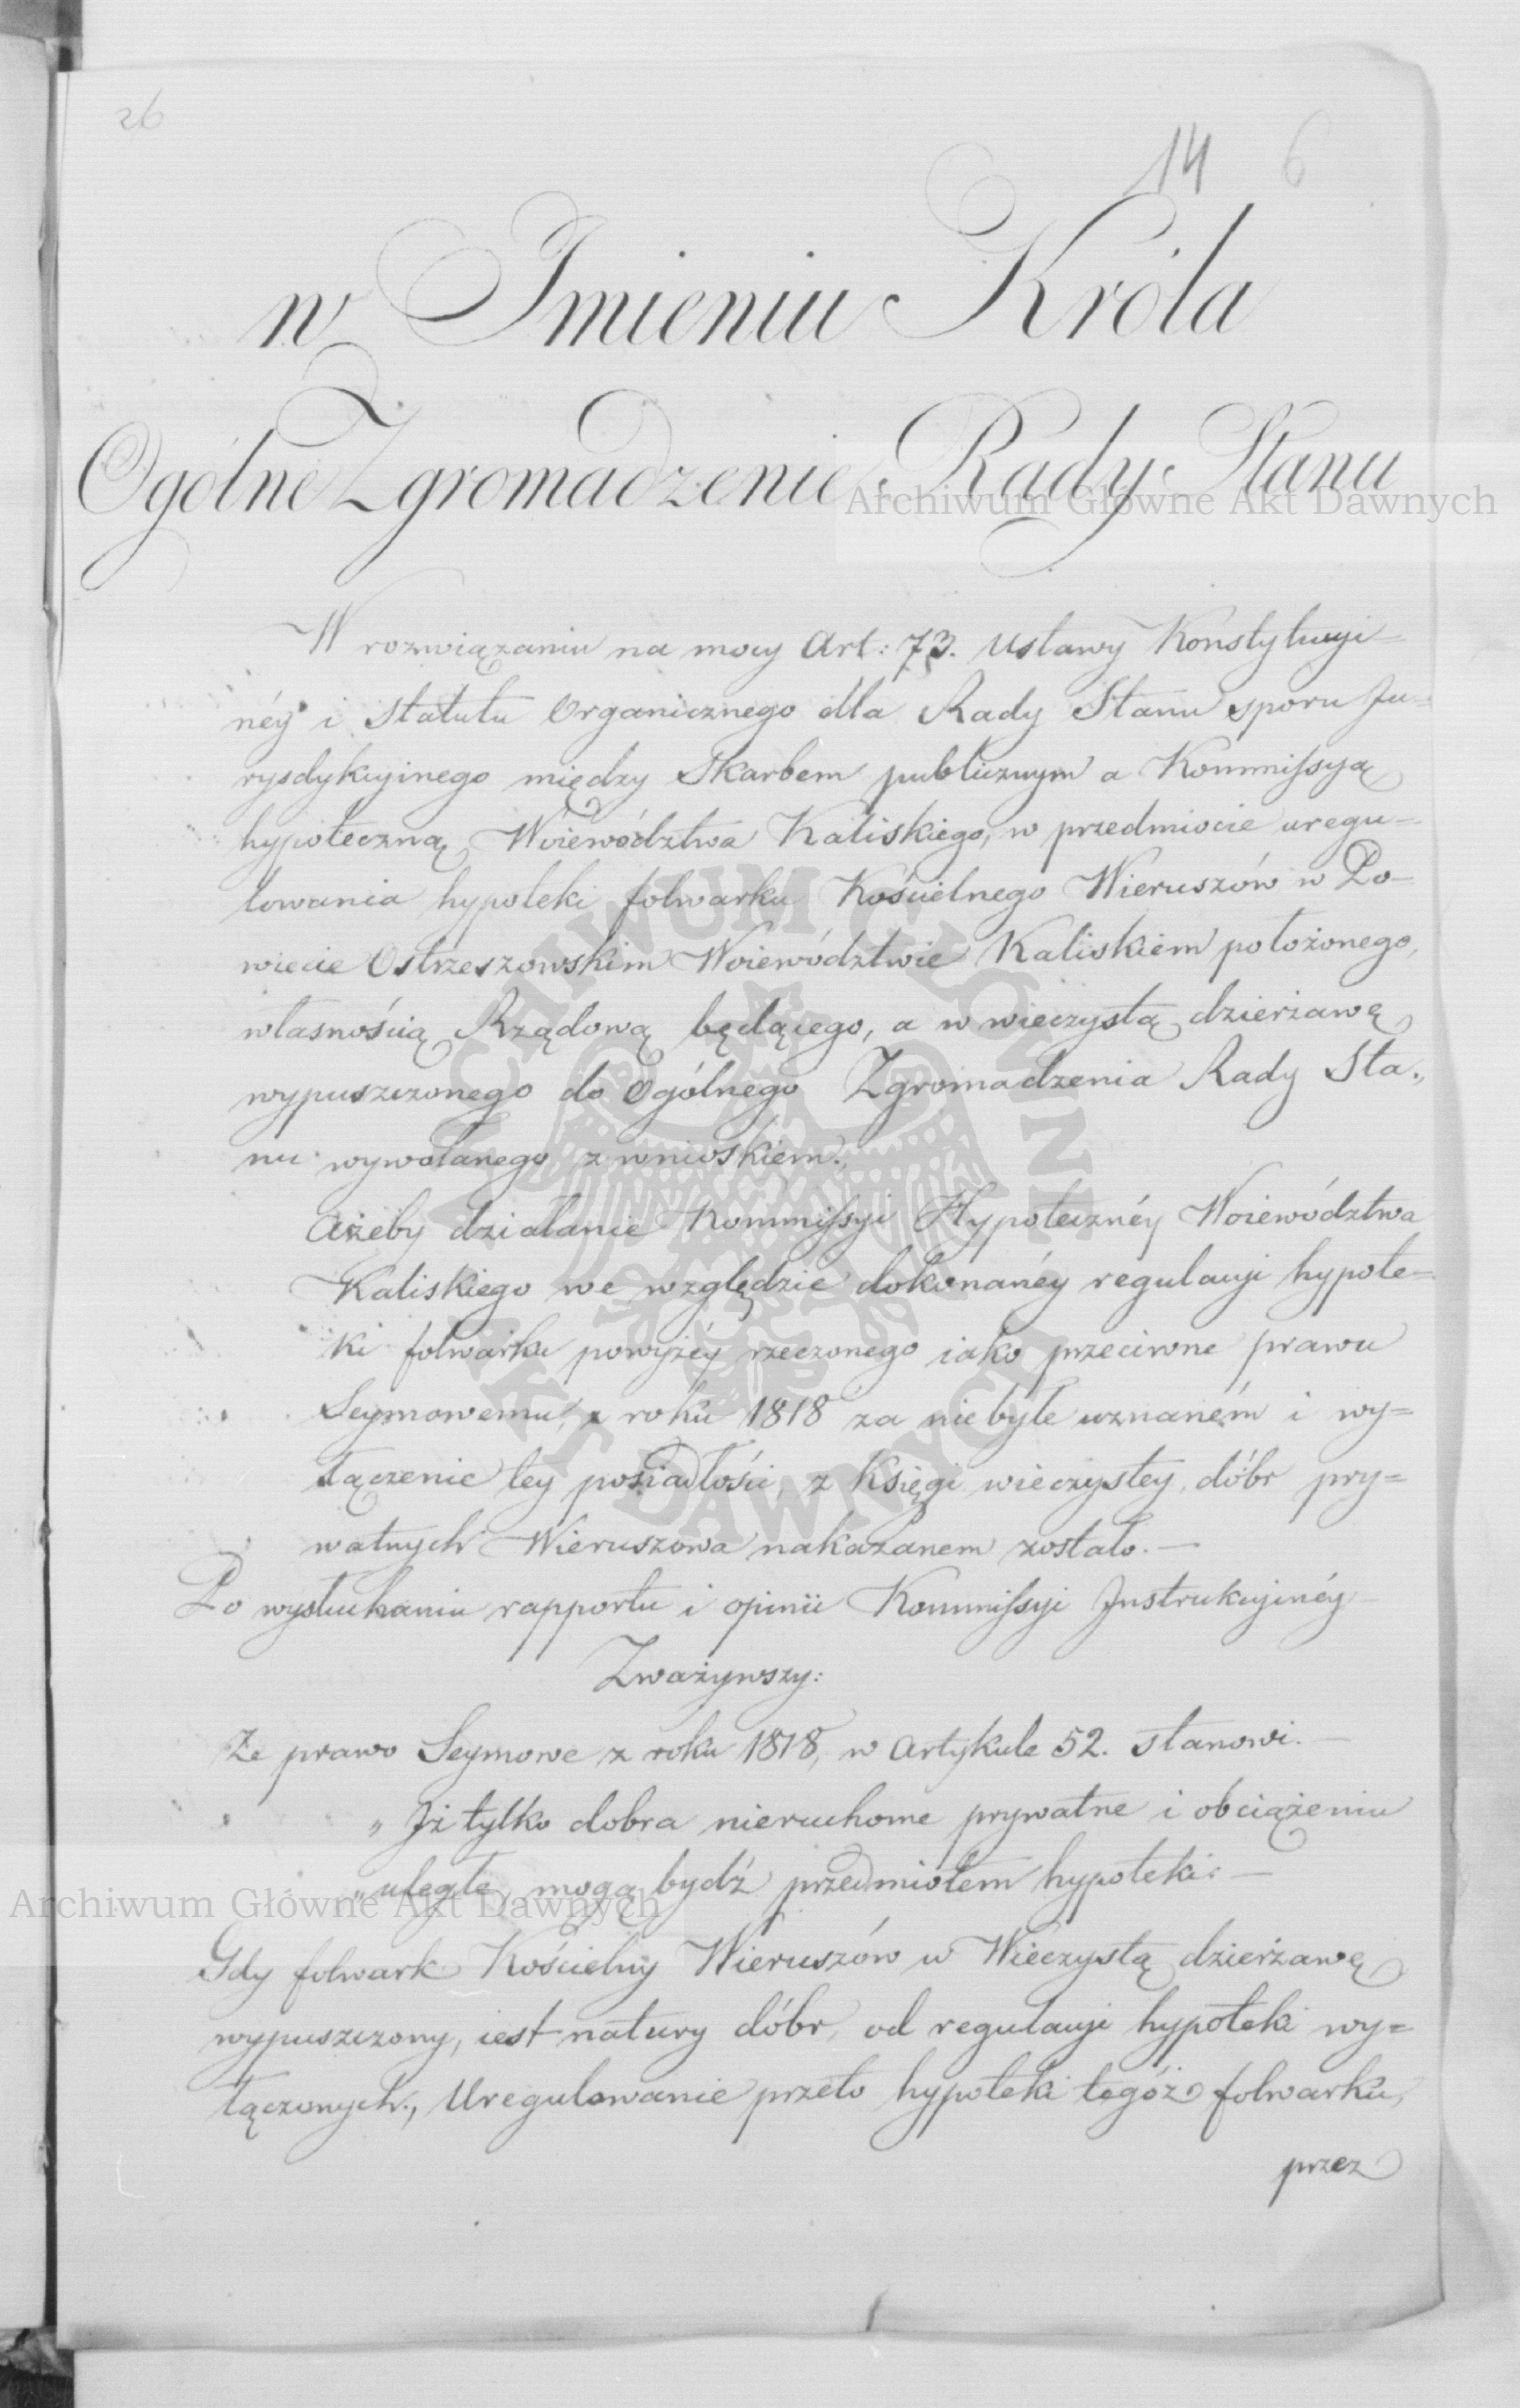 26
14 6
w Imieniu Króla
Ogólne Zgromadzenie Rady Stanu
Archiwum Główne Akt Dawnych
W rozwiązaniu na mocy Art: 73. Ustawy Konstytucyi-
néy i Statutu Organicznego dla Rady Stanu sporu Ju-
rysdykcyinego między Skarbem publicznym a Kommissyą
hypoteczną Woiewództwa Kaliskiego, w przedmiocie uregu-
lowania hypoteki folwarku Kościelnego Wieruszów w Po-
wiecie Ostrzeszowskim Woiewództwie Kaliskiém położonego,
własnością Rządową będącego, a w wieczystą dzierżawę
wypuszczonego do Ogólnego Zgromadzenia Rady Sta-
nu wywołanego z wnioskiem.
Ażeby działanie Kommissyi Hypotecznéy Woiewództwa
Kaliskiego we względzie dokonanéy regulacyi hypote-
ki folwarku powyżéy rzeczonego iako przeciwne prawu
Seymowemu z roku 1818 za niebyłe uznaném i wy-
łączenie tey posiadłości, z Księgi wieczystey dóbr pry-
watnych Wieruszowa nakazanem zostało. —
Po wysłuchaniu rapportu i opinii Kommissyi Instrukcyinéy
Zważywszy:
że prawo Seymowe z roku 1818, w Artykule 52. stanowi. —
„ Iż tylko dobra nieruchome prywatne i obciążeniu
„ uległe, mogą bydź przedmiotem hypoteki: —
Archiwum Główne Akt Dawnych
Gdy folwark Kościelny Wieruszów w Wieczystą dzierżawę
wypuszczony, iest natury dóbr, od regulacyi hypoteki wy-
łączonych, Uregulowanie przeto hypoteki tegóż folwarku,
przez
ARCHIWUM GŁÓWNE
AKT DAWNYCH